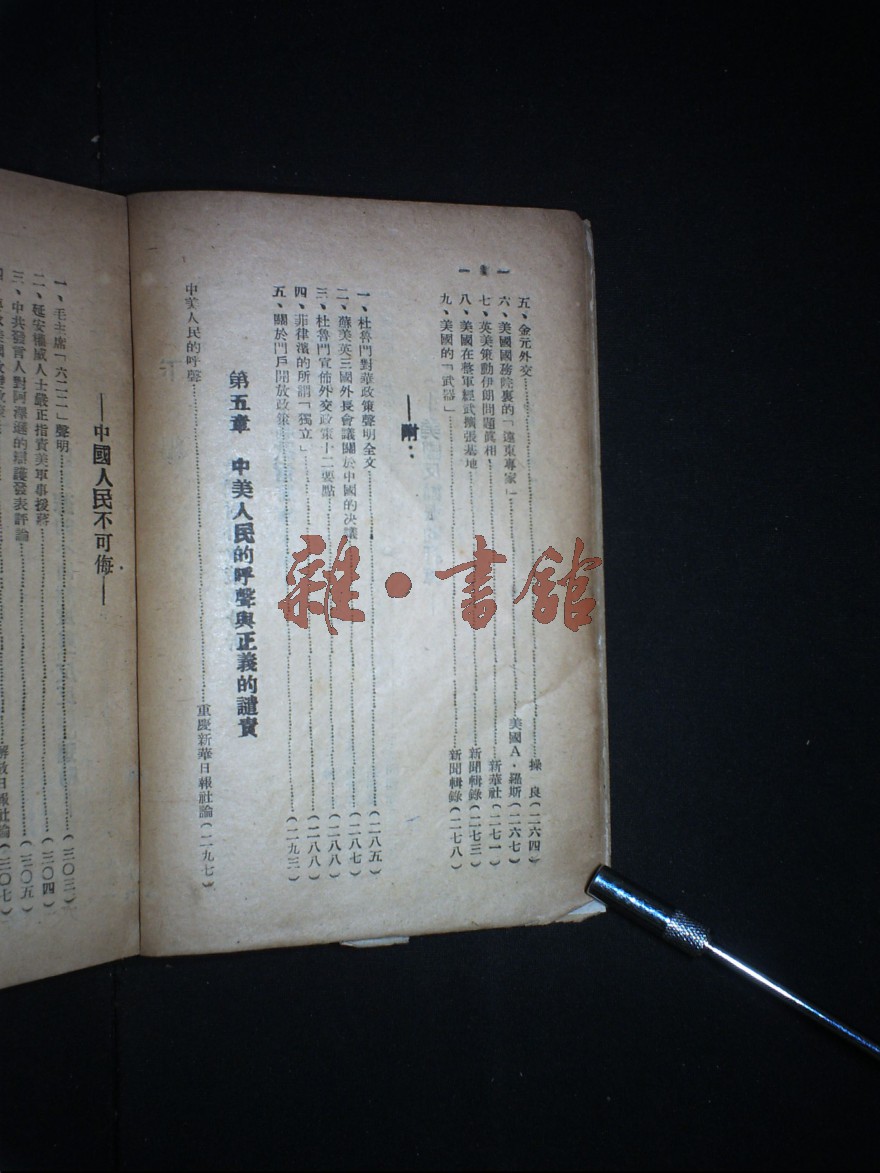 五、金元外交……操 良(二六四)
六、美國國務院裏的「遠東專家」……美國A·羅斯(二六七)
七、英美策動伊朗問題眞相……新華社(二七一)
八、美國在整軍經武擴張基地……新聞輯錄(二七三)
九、美國的「武器」……新聞輯錄(二七八)
——附：
一、杜魯門對華政策聲明全文……(二八五)
二、蘇美英三國外長會議關於中國的决議……(二八七)
三、杜魯門宣佈外交政策十二要點……(二八八)
四、菲律濱的所謂「獨立」……(二八八)
五、關於門戶開放政策……(二九三)
第五章 中美人民的呼聲與正義的譴責
中美人民的呼聲……重慶新華日報社論(二九七)
——中國人民不可侮——
一、毛主席「六二二」聲明……(三〇三)
二、延安權威人士嚴正指責美軍事援蔣……(三〇四)
三、中共發言人對阿澤遜的辯護發表評論……(三〇五)
解放日報社論(三〇七)
雜·書館